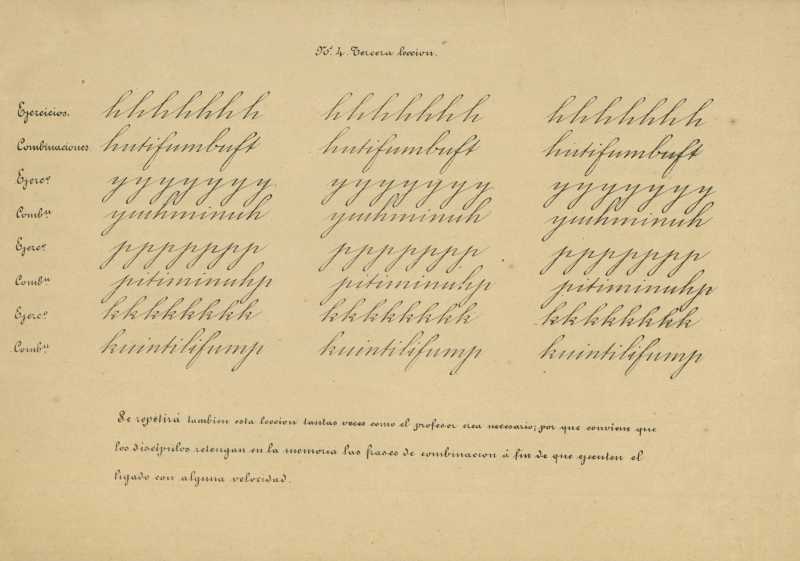 Nº 4. Tercera leccion.
Ejercicios. hhhhhhh hhhhhhh hhhhhhh
Combinaciones. hutifumbuft hutifumbuft hutifumbuft
Ejercº. yyyyyyy yyyyyyy yyyyyyy
Combⁿ. yuthminuh yuthminuh yuthminuh
Ejercº. ppppppp ppppppp ppppppp
Combⁿ. pitiminuhp pitiminuhp pitiminuhp
Ejercº. kkkkkkkk kkkkkkkk kkkkkkkk
Combⁿ. kuintilifump kuintilifump kuintilifump
Se repetirá tambien esta leccion tantas veces como el profesor crea necesario; por que conviene que
los discípulos retengan en la memoria las frases de combinacion á fin de que ejecuten el
ligado con alguna velocidad.